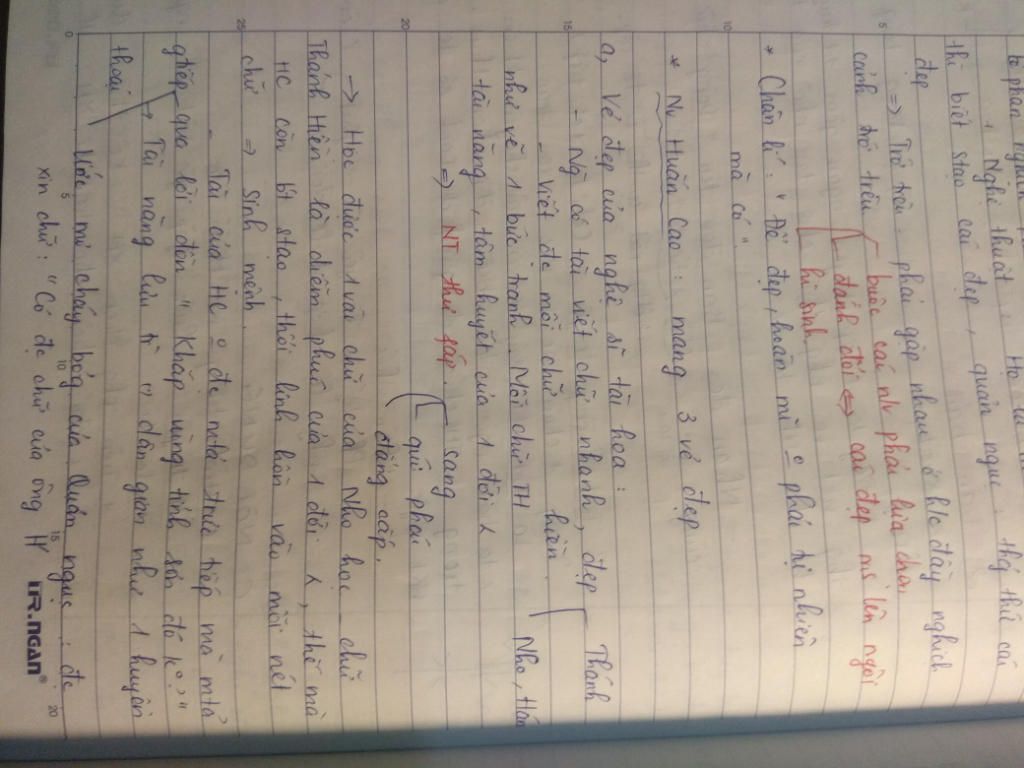 Nghệ thuật
thì biết stạo cái đẹp, quản ngục thg thú cái
đẹp
=> Trớ trêu phải gặp nhau ở h/c đầy nghịch
cảnh trớ trêu buộc các nv phải lựa chọn
đánh đổi <=> cái đẹp ms lên ngôi
hi sinh
* Chân lí = " Để đẹp, hoàn mĩ phải tự nhiên
mà có"
* Nv Huấn Cao : mang 3 vẻ đẹp
a, Vẻ đẹp của nghệ sĩ tài hoa :
- Ng có tài viết chữ nhanh, đẹp Thánh
- viết đc mỗi chữ hiền
như vẽ 1 bức tranh. Mỗi chữ TH Nho, Hán
tài năng, tâm huyết của 1 đời
=> NT thư pháp. sang
quí phái
đẳng cấp.
-> Học được 1 vài chữ của Nho học - chữ
Thánh Hiền là diễm phúc của 1 đời, thế mà
HC còn bt stạo, thổi linh hồn vào mỗi nét
chữ => sinh mệnh.
- Tài của HC đc mtả trực tiếp mà mtả
gtiếp qua lời đồn " khắp vùng tỉnh Sơn đó "
-> Tài năng lưu tr dân gian như 1 huyền
thoại
Ước mơ cháy bỏg của Quản ngục : đc
xin chữ : " Có đc chữ của ông H
TR.NGAN®
5
10
15
20
25
0
5
10
15
20